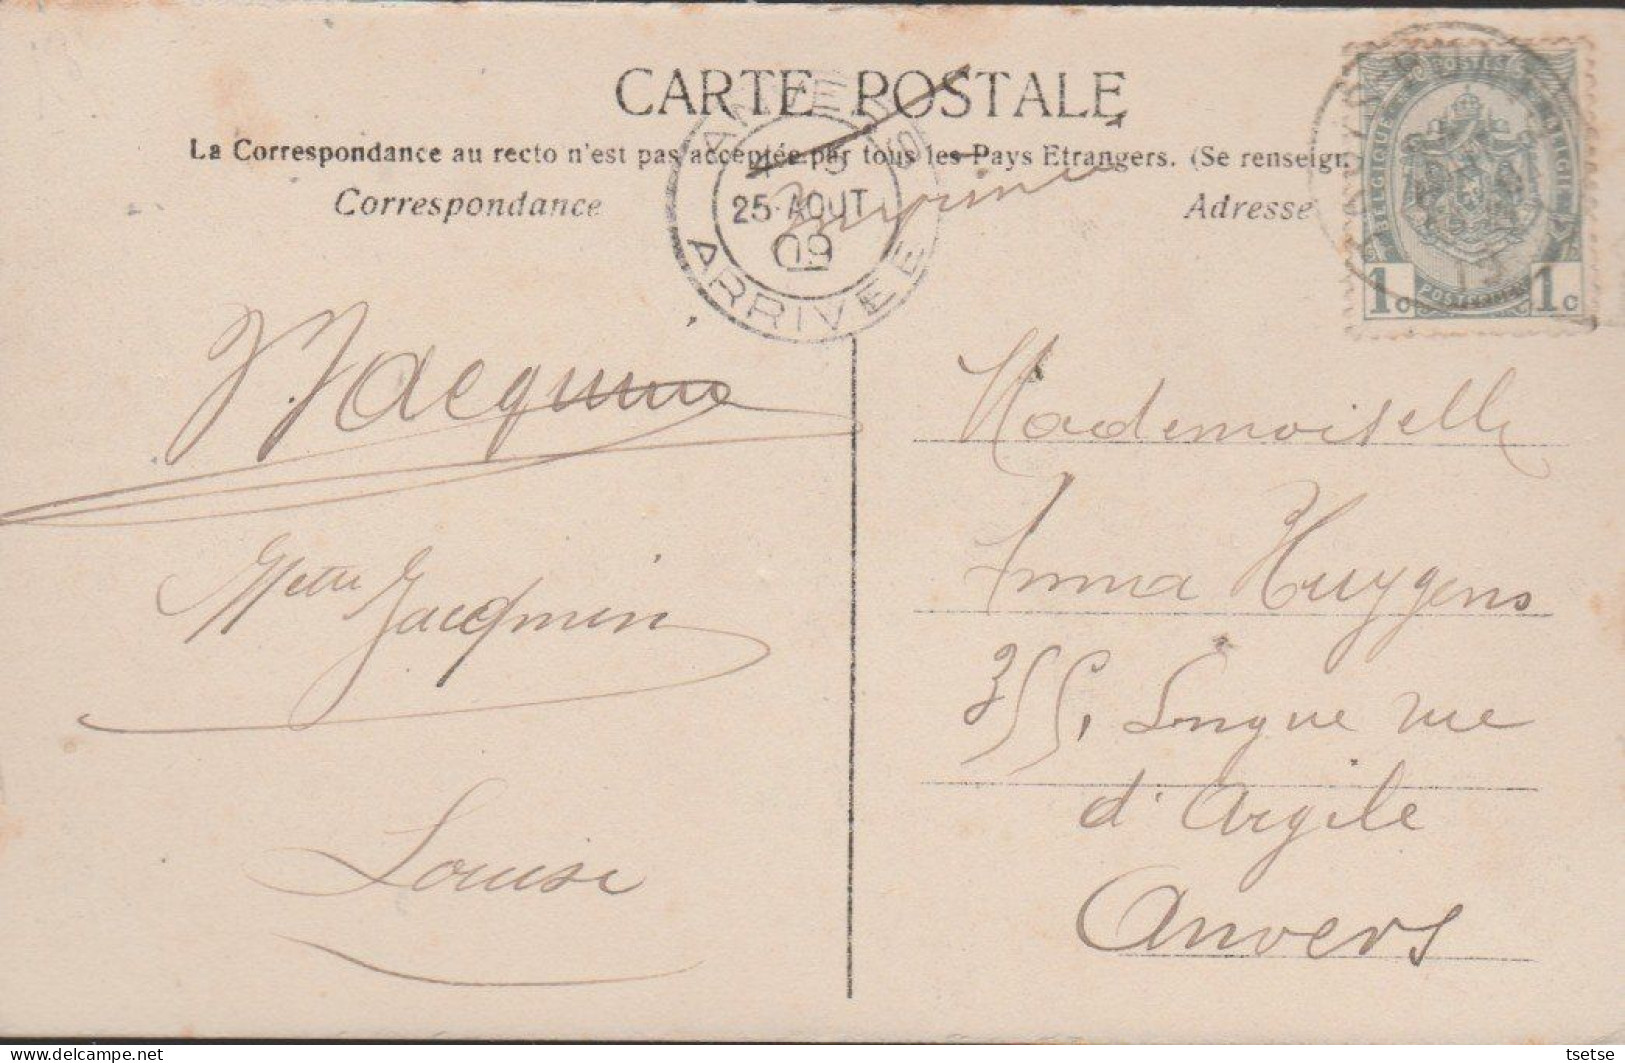 CARTE POSTALE
La Correspondance au recto n'est pas acceptée par tous les Pays Etrangers. (Se renseign
Correspondance
Adresse
ANVERS
25 AOUT
09
ARRIVEE
Imprimé
POSTES
BELGIQUE
BELGIË
1c POSTERIJEN 1c
J. Jacqmin
Mette Jacqmin
Louise
Mademoiselle
Anna Huygens
355, Longue rue
d'Argile
Anvers
tsetse
delcampe.net